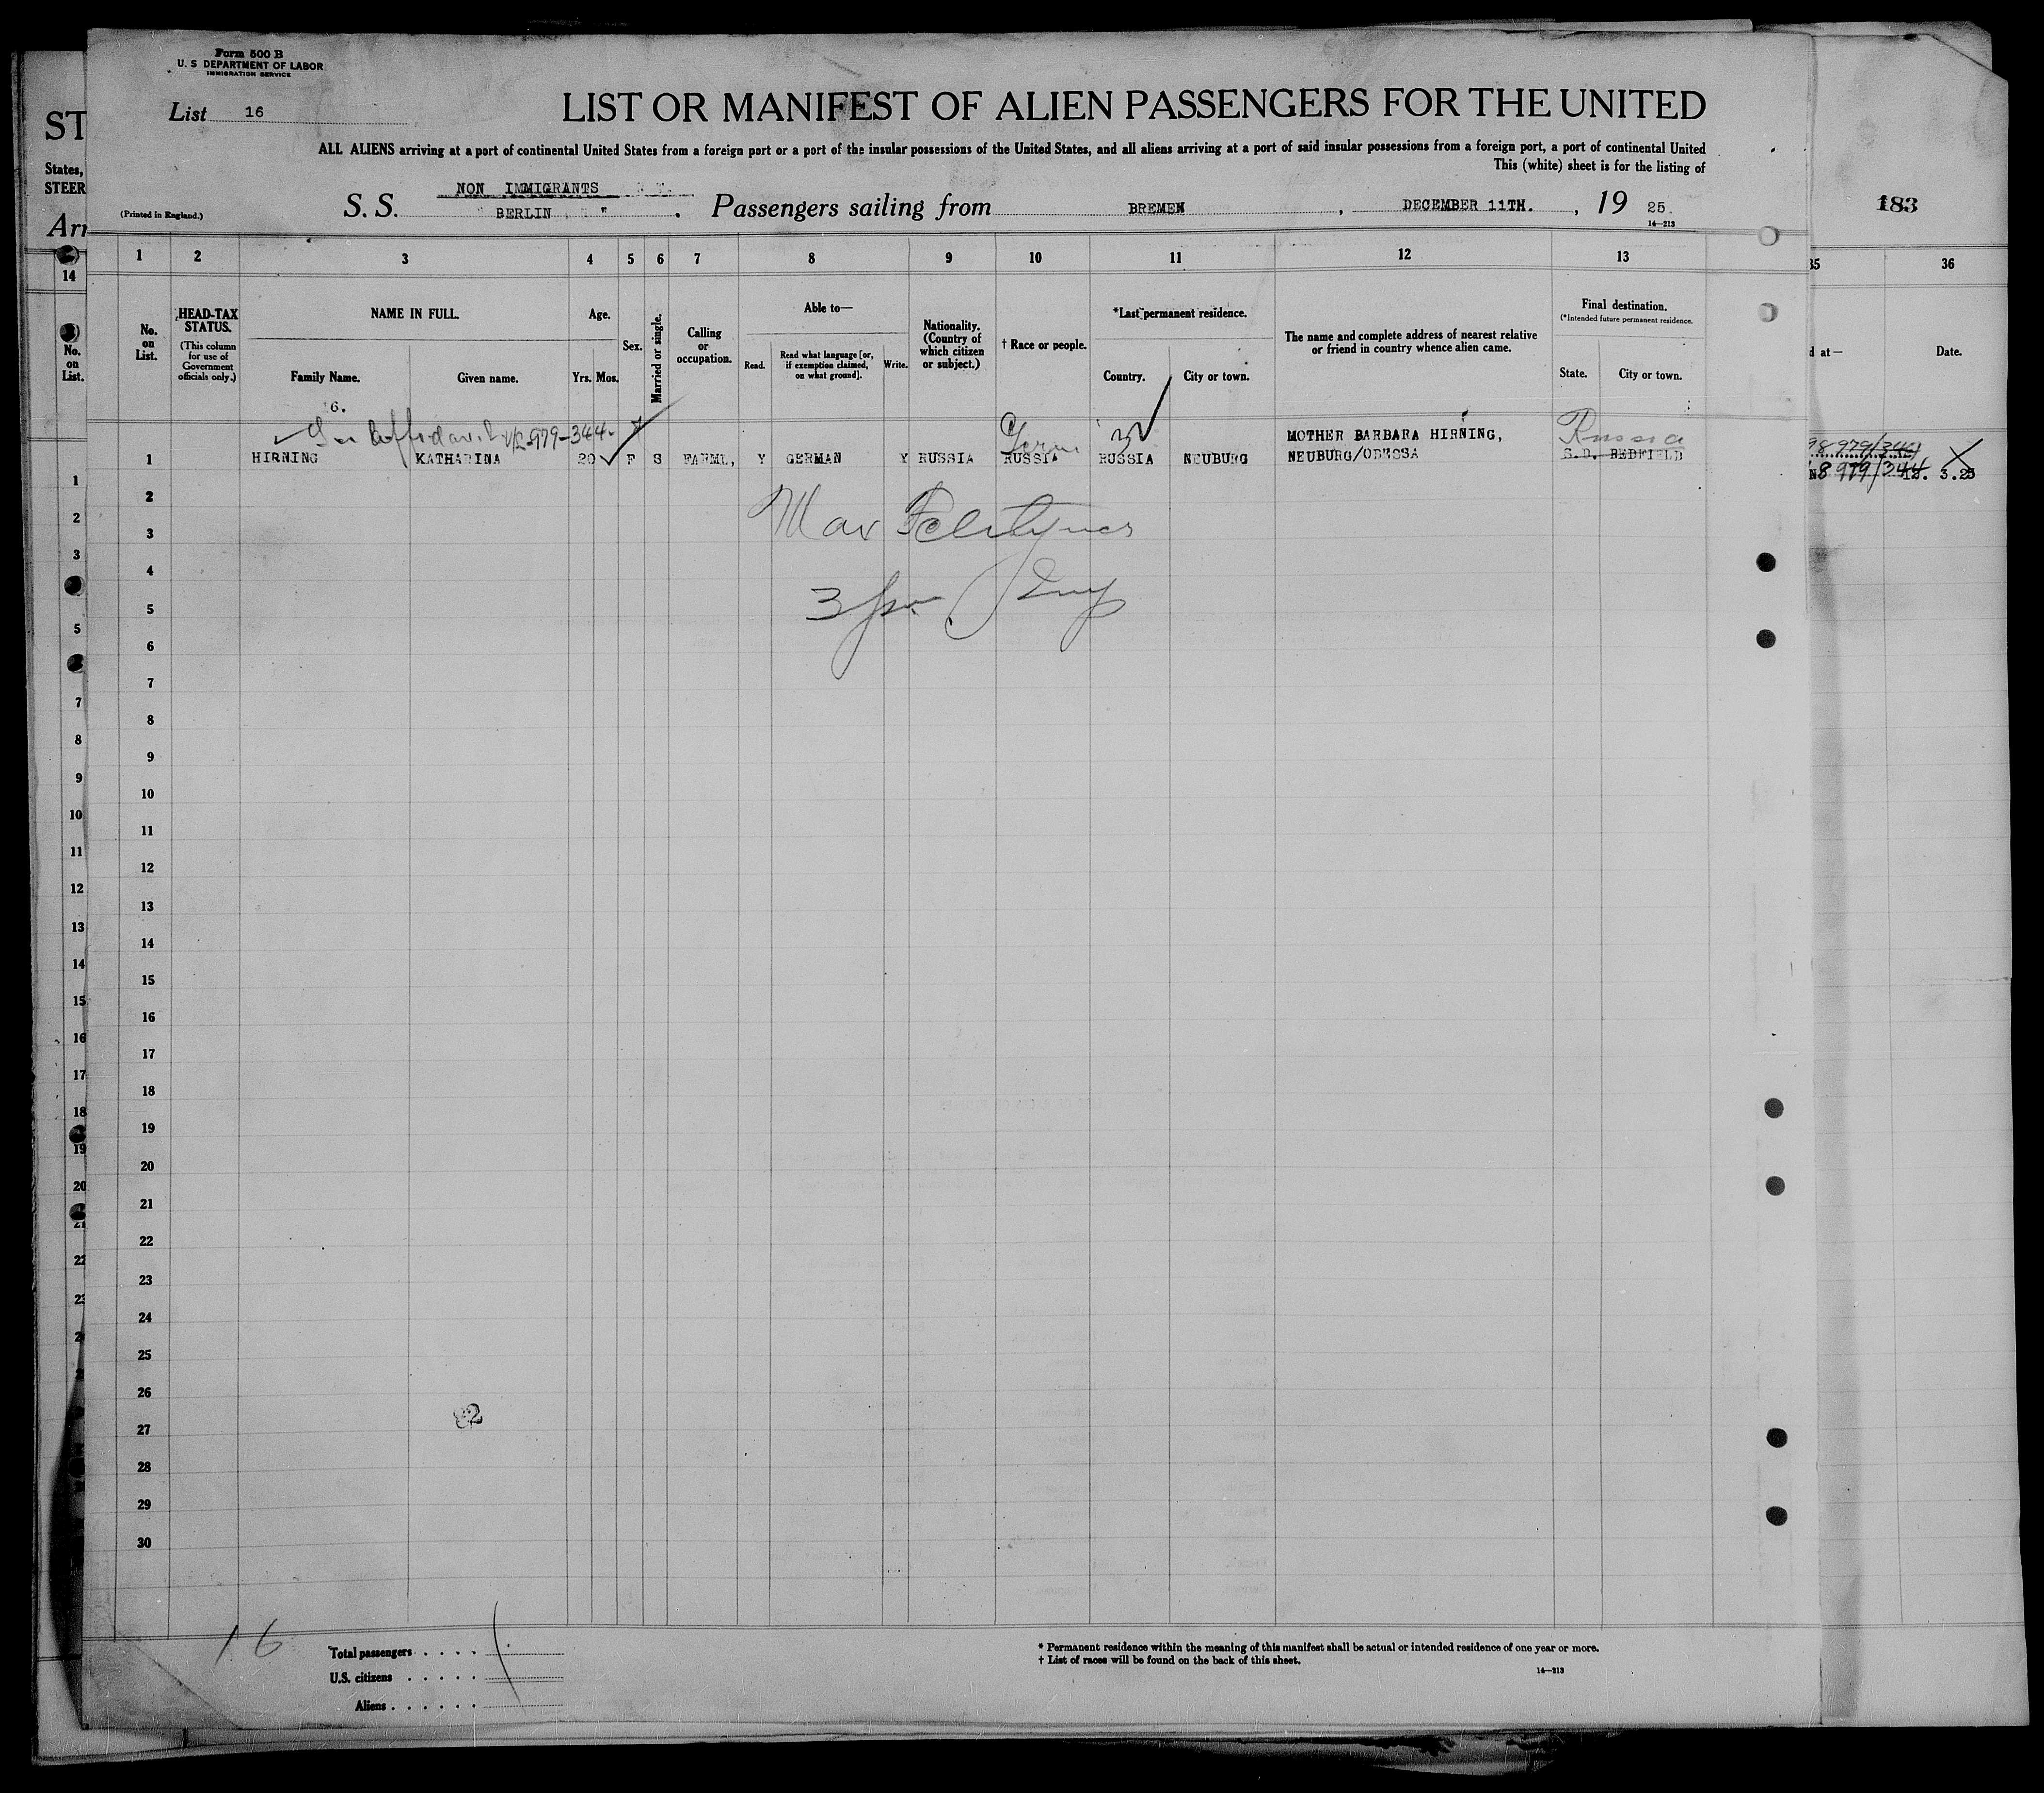 Form 500 B
U. S DEPARTMENT OF LABOR
IMMIGRATION SERVICE
List 16
LIST OR MANIFEST OF ALIEN PASSENGERS FOR THE UNITED
ALL ALIENS arriving at a port of continental United States from a foreign port or a port of the insular possessions of the United States, and all aliens arriving at a port of said insular possessions from a foreign port, a port of continental United
This (white) sheet is for the listing of
NON IMMIGRANTS
(Printed in England.) S. S. " BERLIN " . Passengers sailing from BREMEN , DECEMBER 11TH. , 19 25.
14—213
ST
States,
STEER
Arr
183
1 2 3 4 5 6 7 8 9 10 11 12 13
14
35 36
No. on List.
HEAD-TAX STATUS.
(This column for use of Government officials only.)
NAME IN FULL.
Family Name. Given name.
Age.
Yrs. Mos.
Sex.
Married or single.
Calling or occupation.
Able to—
Read.
Read what language [or, if exemption claimed, on what ground].
Write.
Nationality. (Country of which citizen or subject.)
† Race or people.
*Last permanent residence.
Country. City or town.
The name and complete address of nearest relative or friend in country whence alien came.
Final destination.
(*Intended future permanent residence.
State. City or town.
No. on List.
d at—
Date.
6.
979-344
Germ
Russia
1 HIRNING KATHARINA 20 F S FARML, Y GERMAN Y RUSSIA RUSSIA RUSSIA NEUBURG
MOTHER BARBARA HIRNING,
NEUBURG/ODESSA
S.D. REDFIELD
98 979/344
8 979/344 12. 3.25
2
3
4
5
6
7
8
9
10
11
12
13
14
15
16
17
18
19
20
21
22
23
24
25
26
27
28
29
30
1
2
3
5
6
7
8
9
10
11
12
13
14
15
16
17
18
19
20
82
16
Total passengers . . . . .
U.S. citizens . . . . .
Aliens . . . . . .
* Permanent residence within the meaning of this manifest shall be actual or intended residence of one year or more.
† List of races will be found on the back of this sheet.
14—213